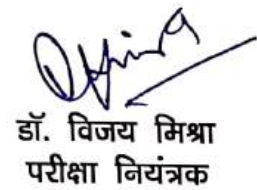 डॉ. विजय मिश्रा
परीक्षा नियंत्रक